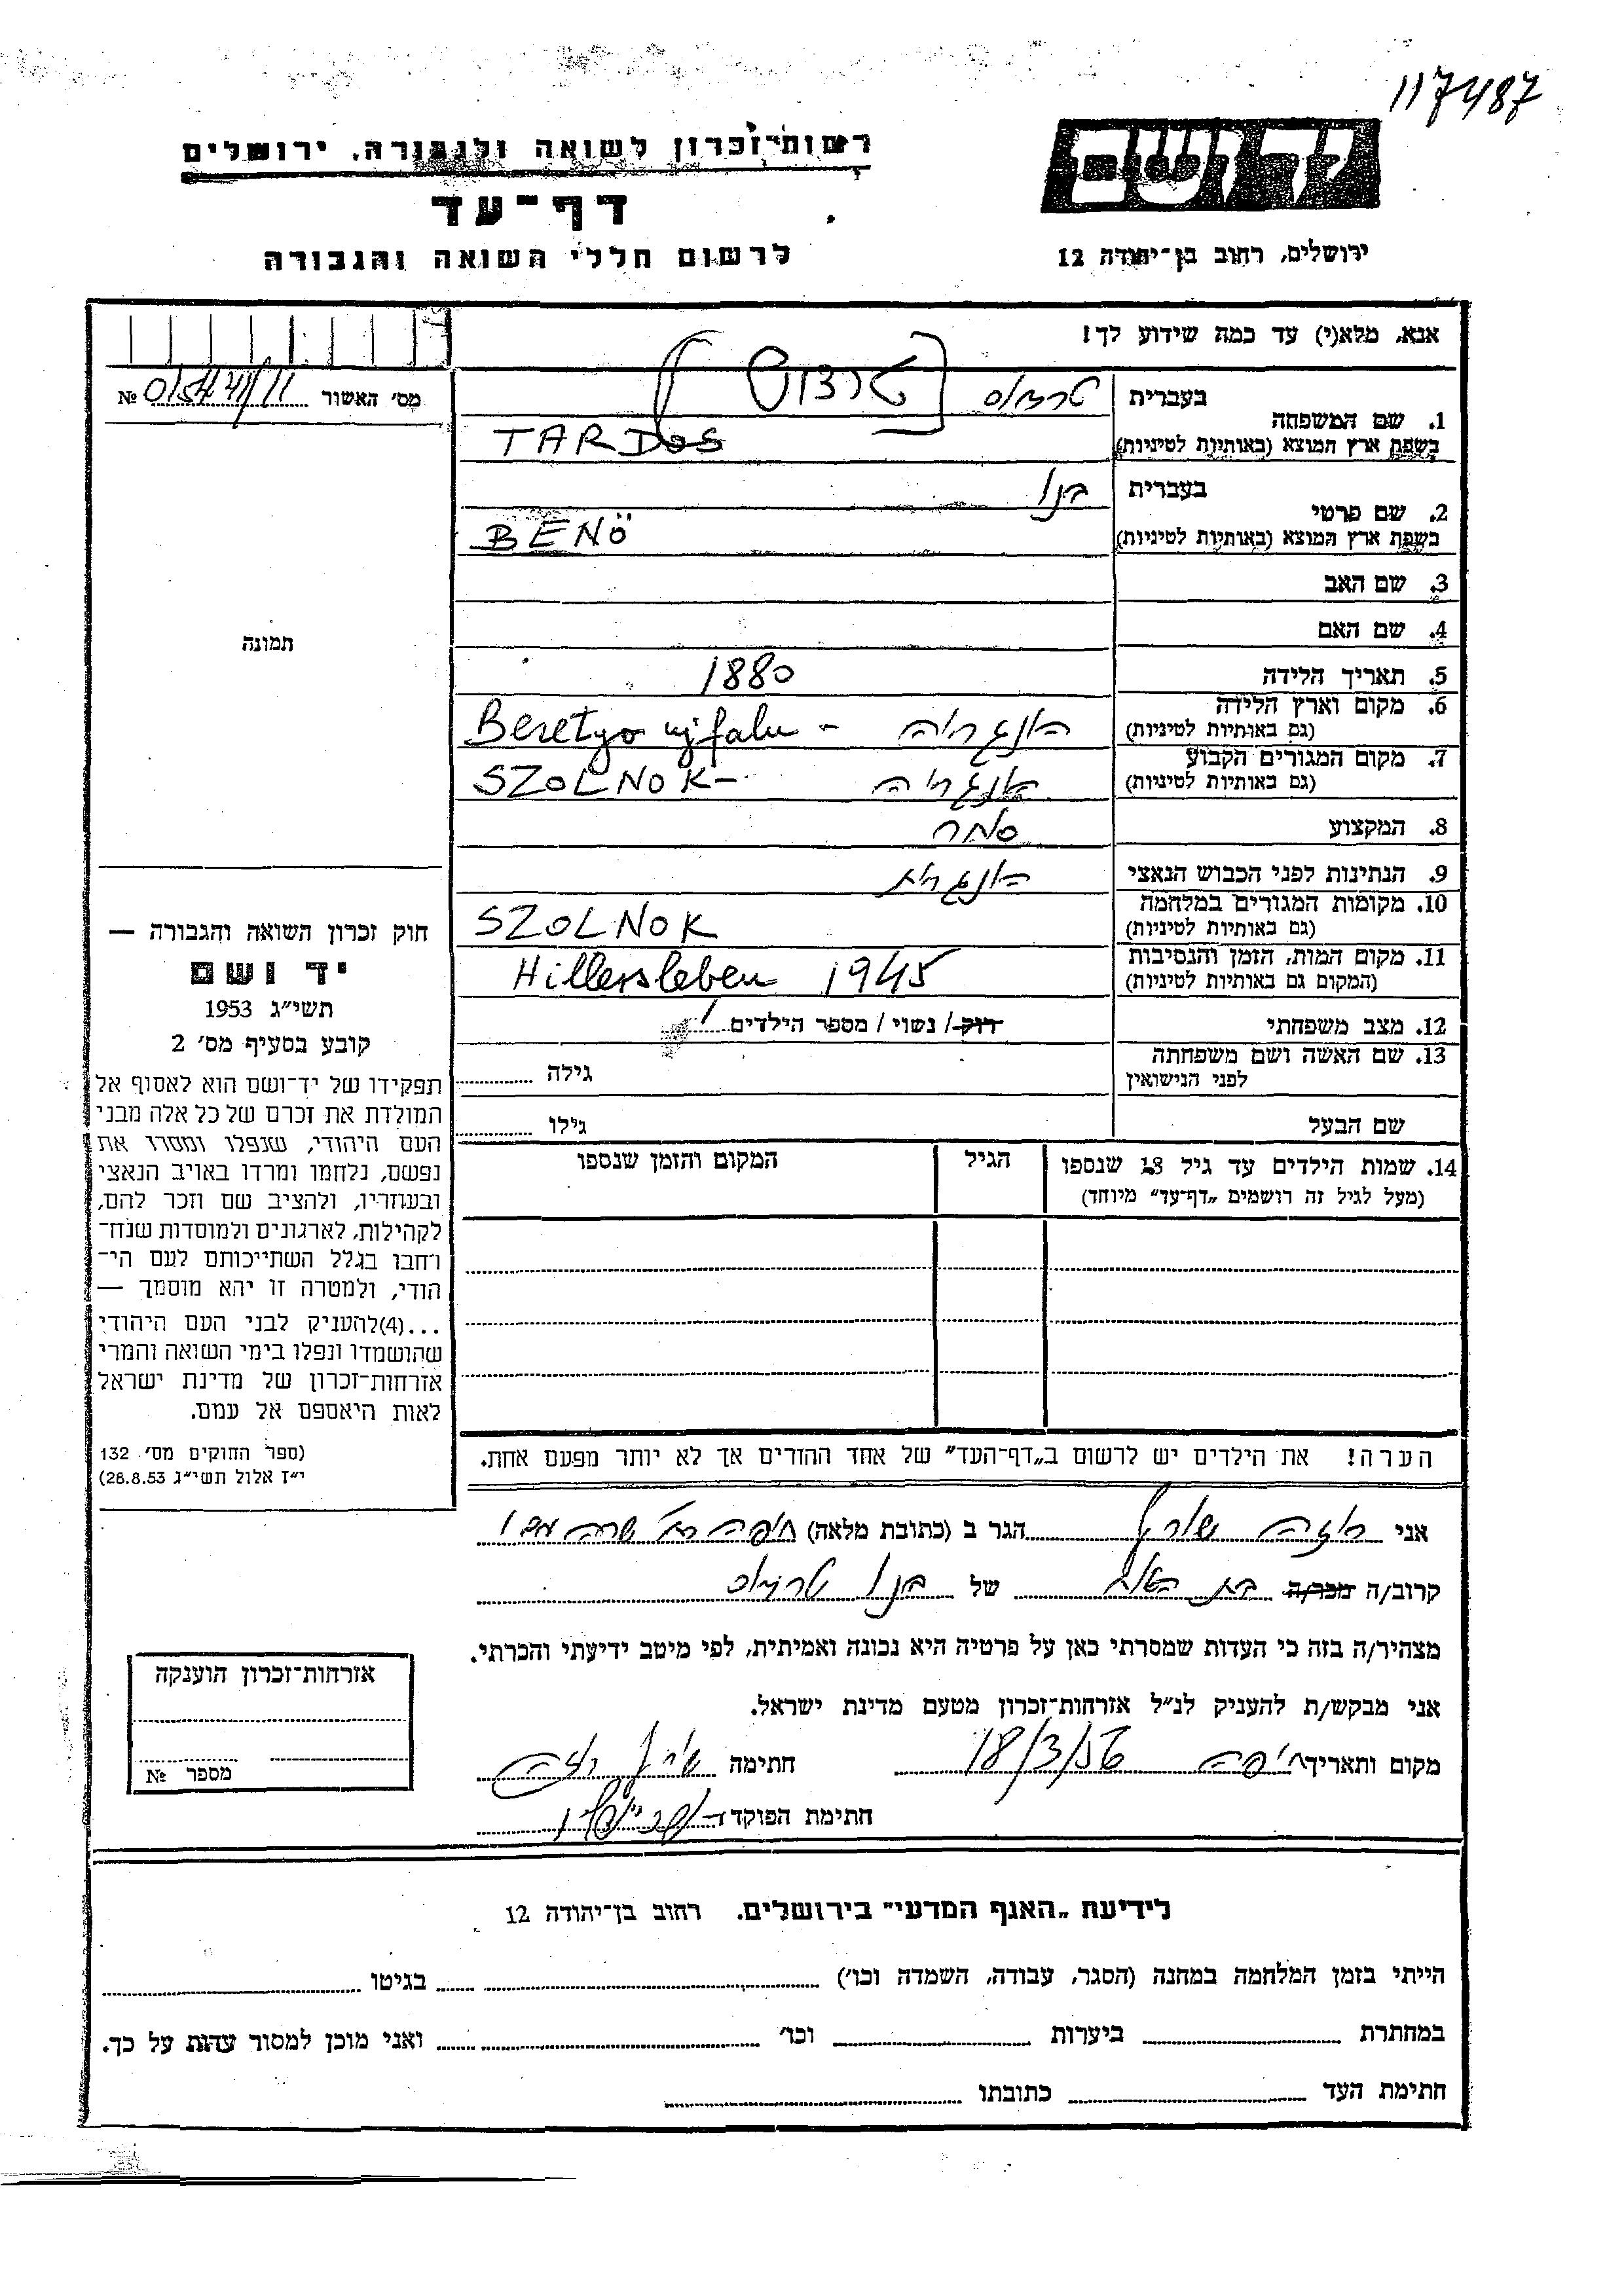 117487
יד ושם
ירושלים, רחוב בן־יהודה 12
רשות־זכרון לשואה ולגבורה, ירושלים
דף־עד
לרשום חללי השואה והגבורה
אנא, מלא(י) עד כמה שידוע לך!
מס׳ האשור №
1. שם המשפחה
בעברית טרדוס [טרדוש]
בשפת ארץ המוצא (באותיות לטיניות) TARDOS
2. שם פרטי
בעברית בנו
בשפת ארץ המוצא (באותיות לטיניות) BENÖ
3. שם האב
4. שם האם
5. תאריך הלידה 1880
6. מקום וארץ הלידה (גם באותיות לטיניות) הונגריה - Beretyo ujfalu
7. מקום המגורים הקבוע (גם באותיות לטיניות) הונגריה - SZOLNOK
8. המקצוע סוחר
9. הנתינות לפני הכבוש הנאצי הונגרית
10. מקומות המגורים במלחמה (גם באותיות לטיניות) SZOLNOK
11. מקום המות, הזמן והנסיבות (המקום גם באותיות לטיניות) Hillersleben 1945
12. מצב משפחתי רוק / נשוי / מספר הילדים 1
13. שם האשה ושם משפחתה לפני הנישואין גילה
שם הבעל גילו
14. שמות הילדים עד גיל 18 שנספו (מעל לגיל זה רושמים „דף־עד” מיוחד)
הגיל
המקום והזמן שנספו
הערה! את הילדים יש לרשום ב„דף־העד” של אחד ההורים אך לא יותר מפעם אחת.
תמונה
חוק זכרון השואה והגבורה —
יד ושם
תשי״ג 1953
קובע בסעיף מס׳ 2
תפקידו של יד־ושם הוא לאסוף אל
המולדת את זכרם של כל אלה מבני
העם היהודי, שנפלו ומסרו את
נפשם, נלחמו ומרדו באויב הנאצי
ובעוזריו, ולהציב שם וזכר להם,
לקהילות, לארגונים ולמוסדות שנח־
רחבו בגלל השתייכותם לעם הי־
הודי, ולמטרה זו יהא מוסמך —
...(4)להעניק לבני העם היהודי
שהושמדו ונפלו בימי השואה והמרי
אזרחות־זכרון של מדינת ישראל
לאות היאספם אל עמם.
(ספר החוקים מס׳ 132
י״ז אלול תשי״ג 28.8.53)
אני רוזה הגר ב (כתובת מלאה) חיפה
קרוב/ה מכר/ה של בנו טרדוס
מצהיר/ה בזה כי העדות שמסרתי כאן על פרטיה היא נכונה ואמיתית, לפי מיטב ידיעתי והכרתי.
אני מבקש/ת להעניק לנ״ל אזרחות־זכרון מטעם מדינת ישראל.
מקום ותאריך חיפה 18/3/56 חתימה
חתימת הפוקד
אזרחות־זכרון הוענקה
מספר №
לידיעת „האגף המדעי” בירושלים. רחוב בן־יהודה 12
הייתי בזמן המלחמה במחנה (הסגר, עבודה, השמדה וכו׳) בגיטו
במחתרת ביערות וכו׳ ואני מוכן למסור עדות על כך.
חתימת העד כתובתו